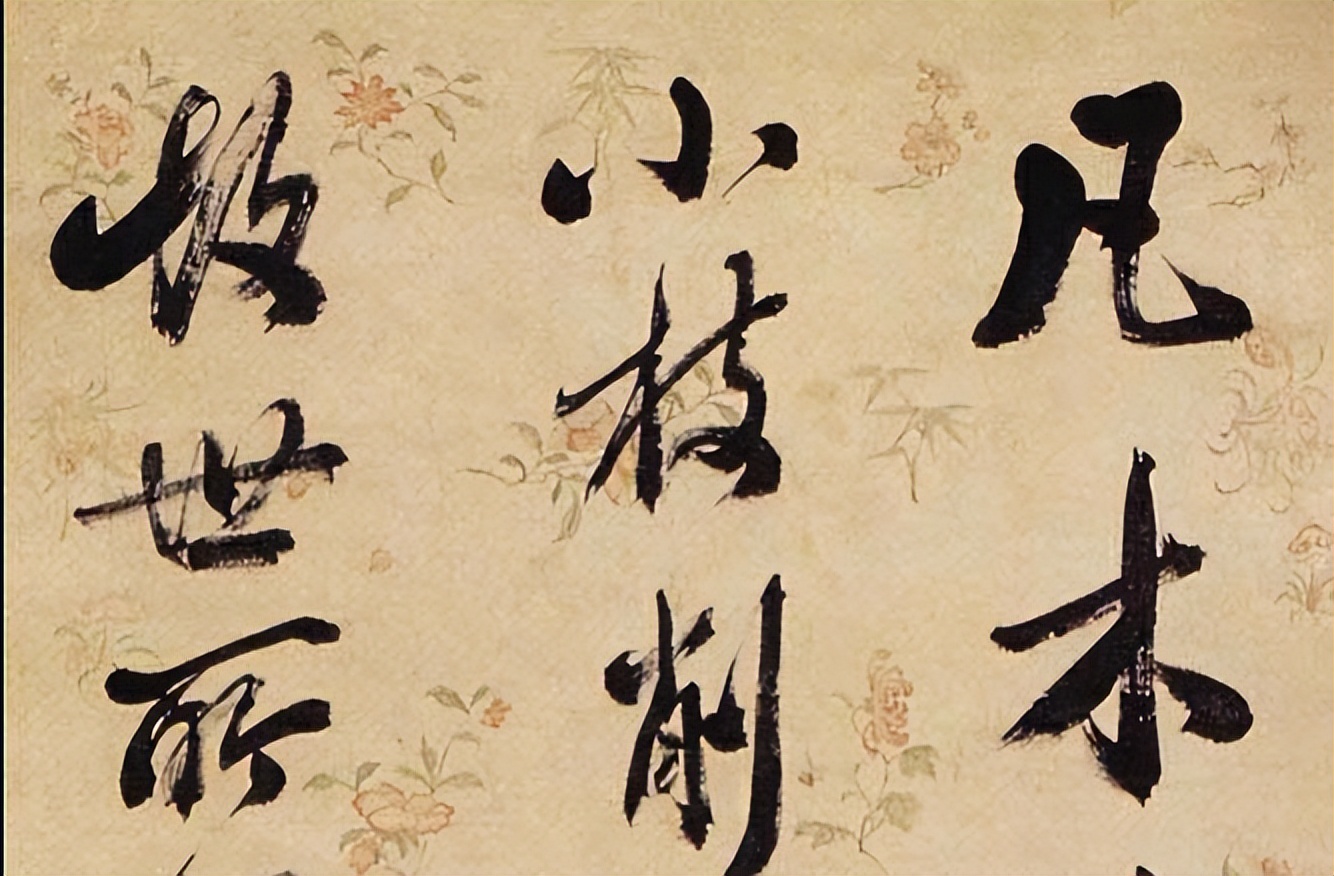 凡木
小枝削
故世所